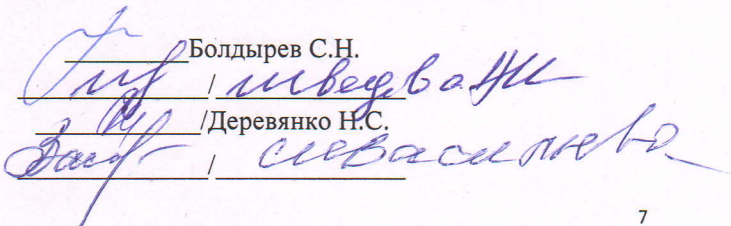 Болдырев С.Н.
/ Шведова
/Деревянко Н.С.
/ Васильева
7